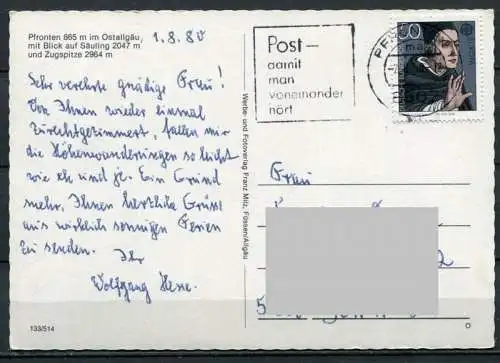 Pfronten 865 m im Ostallgäu,
mit Blick auf Säuling 2047 m
und Zugspitze 2964 m
1.8.80
Sehr verehrte gnädige Frau!
Von Ihnen wieder einmal
zurechtgezimmert, fallen mir
die Höhenwanderungen so leicht
wie eh und je. Ein Grund
mehr, Ihnen herzliche Grüße
aus wirklich sonnigen Ferien
zu senden. Ihr
Wolfgang Hesse.
133/514
Werbe- und Fotoverlag Franz Milz, Füssen/Allgäu
Post –
damit
man
voneinander
hört
60
Frau